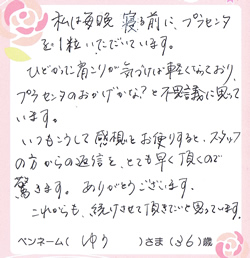 私は毎晩 寝る前に、プラセンタ
を1粒いただいています。
ひどかった肩こりが気づけば軽くなっており、
プラセンタのおかげかな?と不思議に思って
います。
いつもこうして感想をお便りすると、スタッフ
の方からの返信を、とても早く頂くので
驚きます。ありがとうございます。
これからも、続けさせて頂きたいと思っています。
ペンネーム( ゆう )さま(36)歳